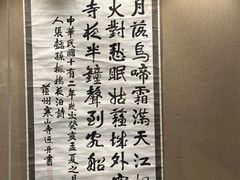 月落烏啼霜滿天江
火對愁眠姑蘇城外寒
寺夜半鐘聲到客船
中華民國十有二年歲次癸亥孟夏之月
人張懿孫楓橋夜泊詩
蘇州寒山寺